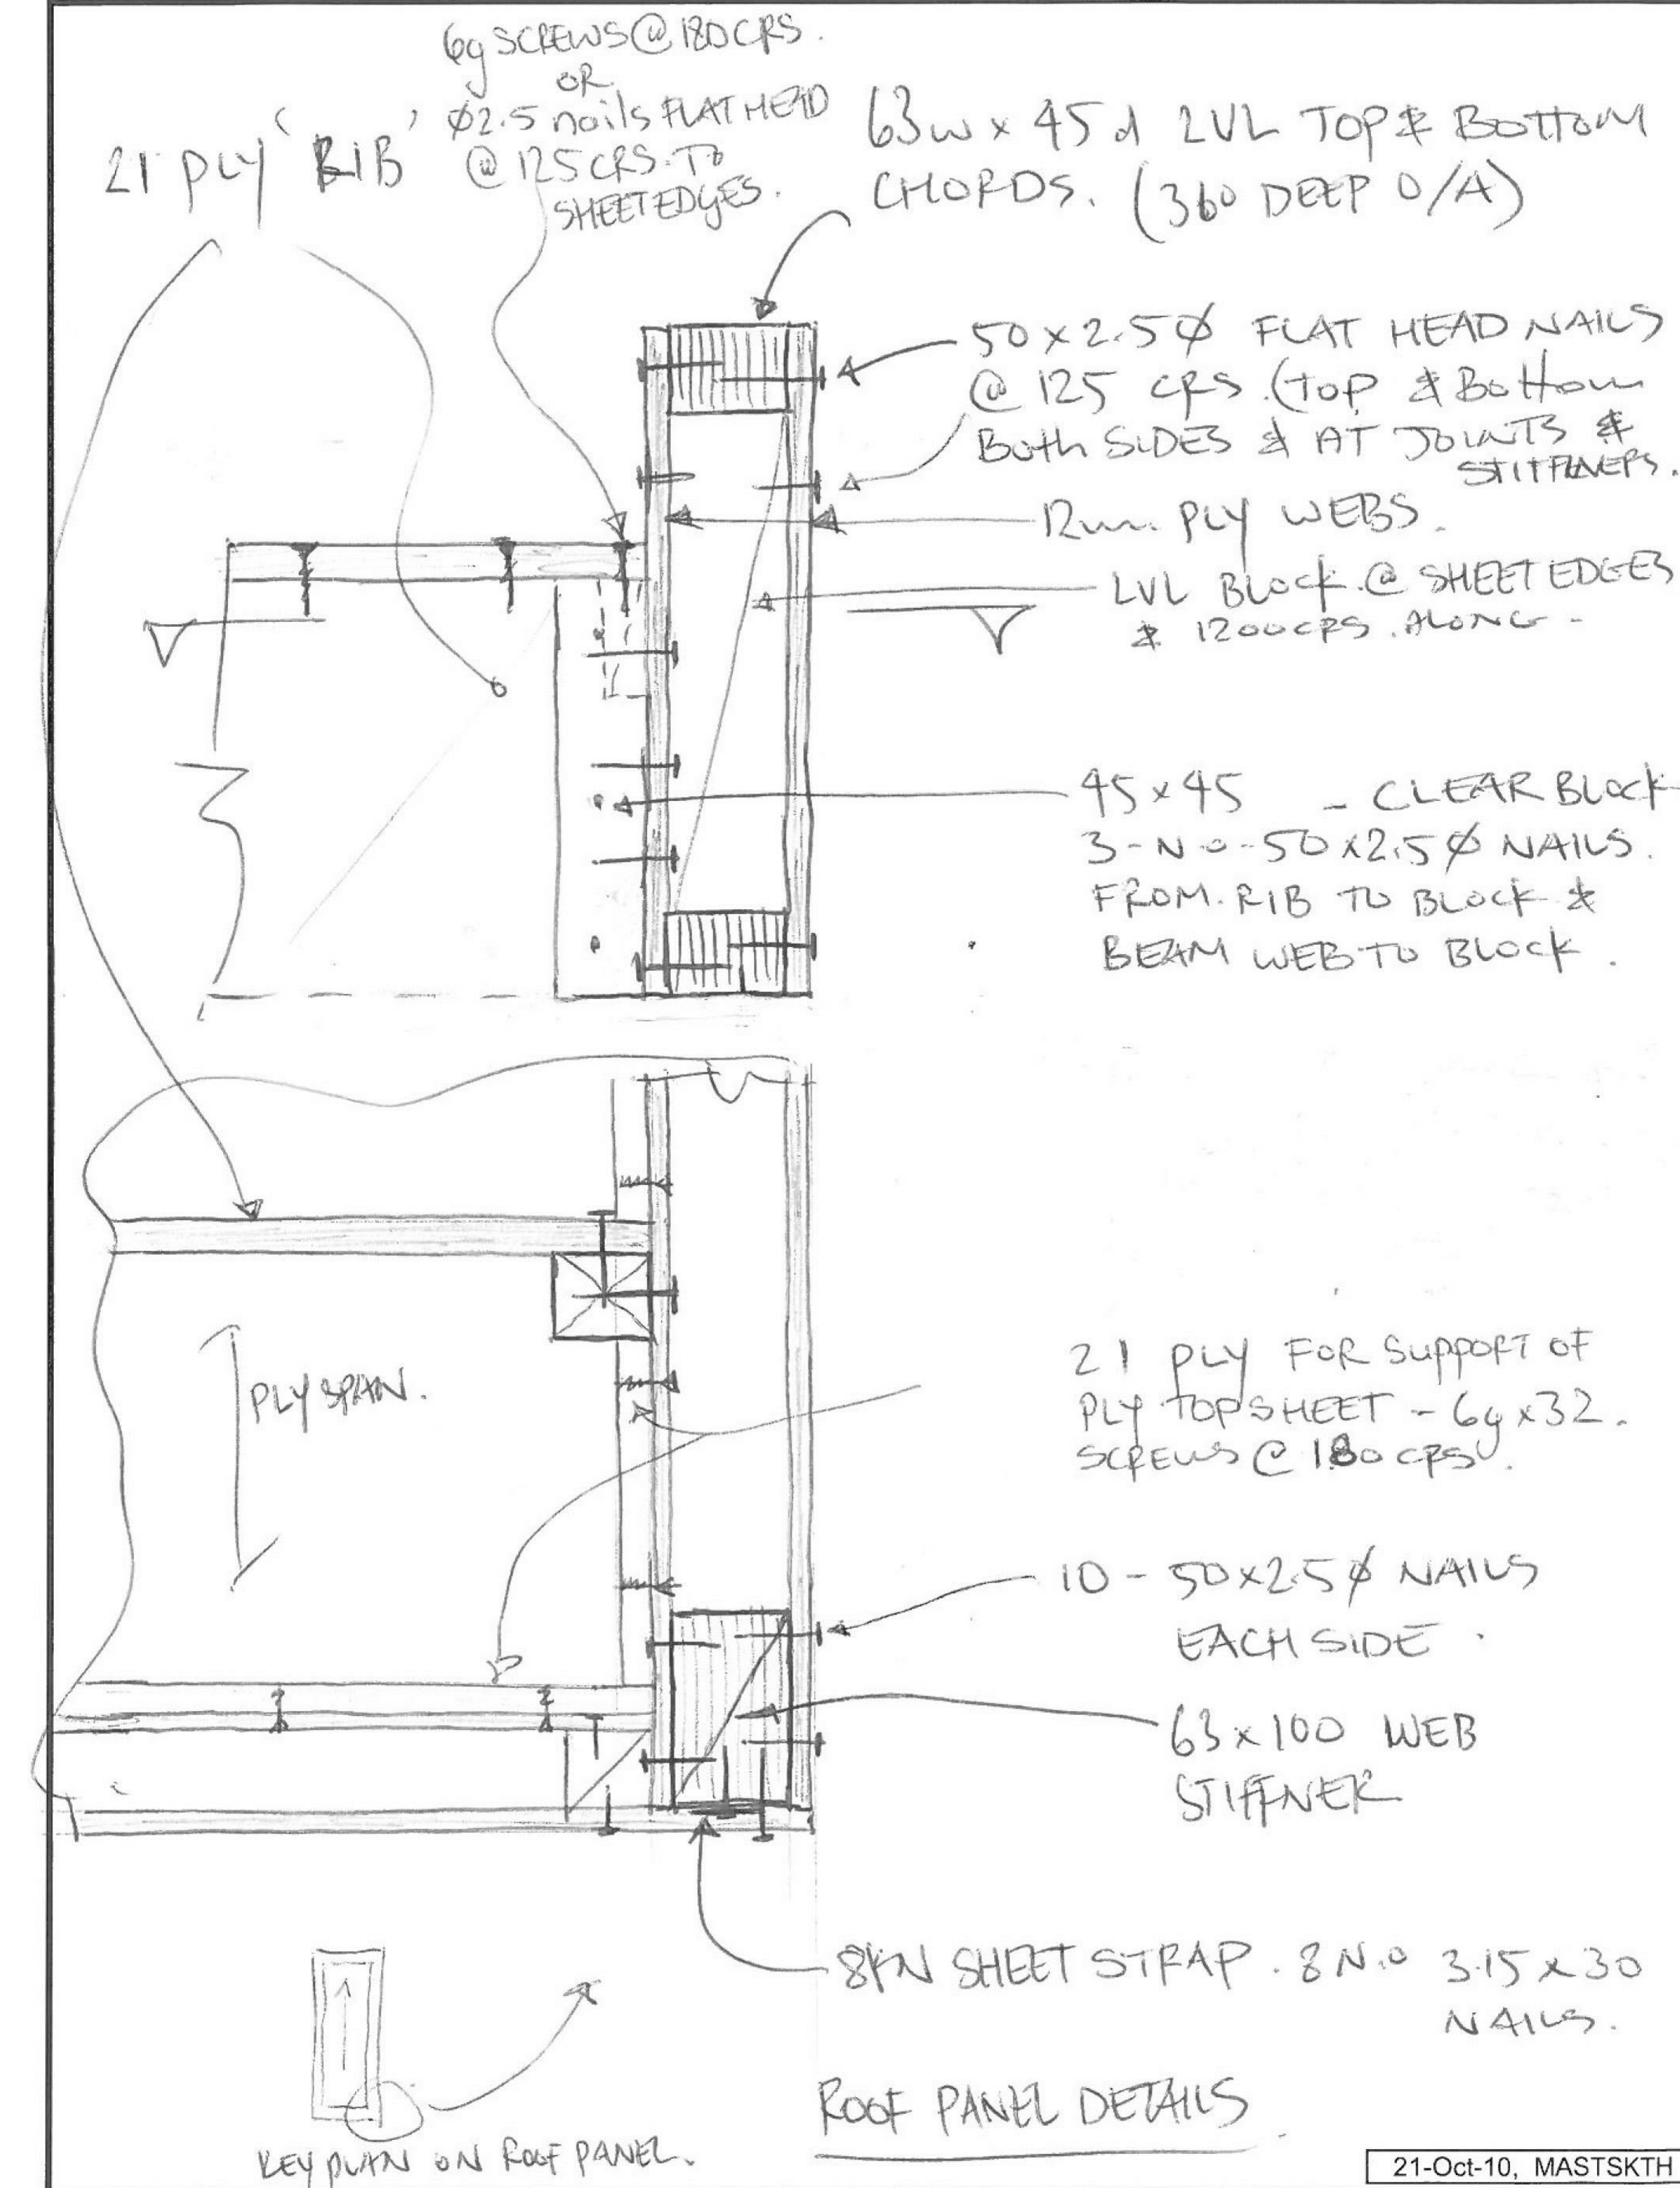 6g SCREWS @ 180 CRS.
OR
Ø2.5 nails FLAT HEAD
@ 125 CRS. TO
SHEET EDGES.
21 PLY 'RIB'
63w x 45d LVL TOP & BOTTOM
CHORDS. (360 DEEP O/A)
50 x 2.5Ø FLAT HEAD NAILS
@ 125 CRS. (TOP & BOTTOM
BOTH SIDES & AT JOINTS &
STIFFENERS.
12mm PLY WEBS.
LVL BLOCK @ SHEET EDGES
& 1200 CRS. ALONG -
45 x 45 - CLEAR BLOCK
3-No-50 x 2.5Ø NAILS.
FROM RIB TO BLOCK &
BEAM WEB TO BLOCK.
PLY SPAN.
21 PLY FOR SUPPORT OF
PLY TOPSHEET - 6g x 32.
SCREWS @ 180 CRS.
10 - 50 x 2.5Ø NAILS
EACH SIDE.
63 x 100 WEB
STIFFNER
8KN SHEET STRAP. 8 No 3.15 x 30
NAILS.
KEY PLAN ON ROOF PANEL.
ROOF PANEL DETAILS
21-Oct-10, MASTSKTH